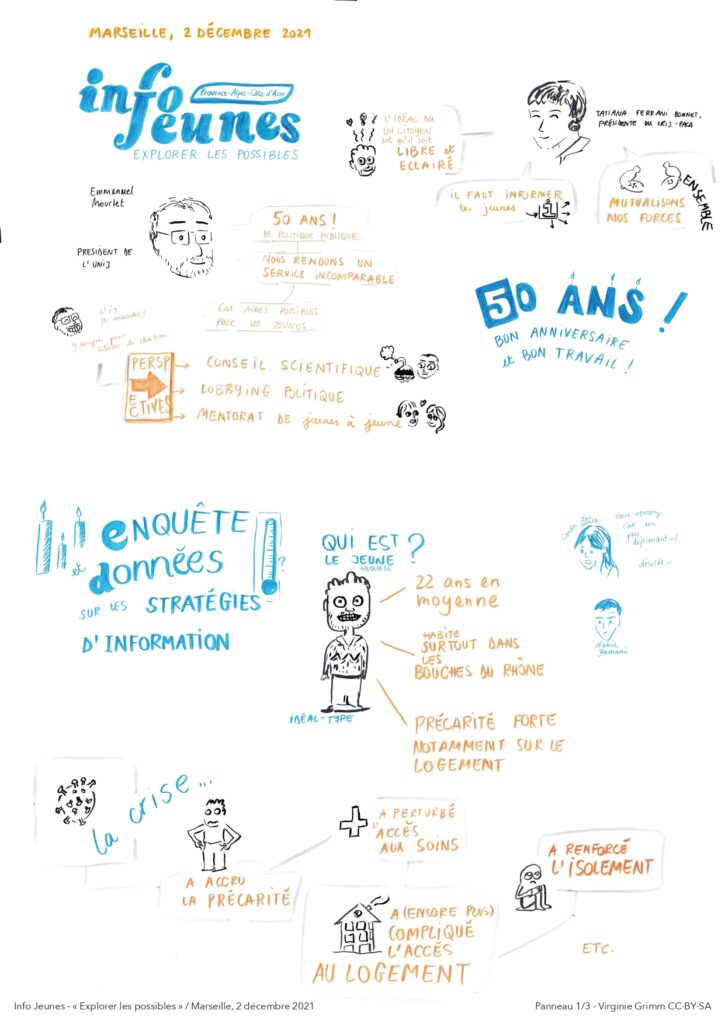 MARSEILLE, 2 DÉCEMBRE 2021
info
Jeunes
Province-Alpes-Côte d'Azur
EXPLORER LES POSSIBLES
L'IDÉAL DU
UN CITOYEN
est qu'il soit
LIBRE et
ECLAIRÉ
TATIANA FERRANI BONNET,
PRÉSIDENTE DU CRIJ-PACA
IL FAUT INFORMER
les jeunes
MUTUALISONS
NOS FORCES
ENSEMBLE
Emmanuel
Mourlet
PRESIDENT DE
L'UNIJ
50 ANS!
DE POLITIQUE PUBLIQUE...
NOUS RENDONS UN
SERVICE INCOMPARABLE
AIDES POSSIBLES
POUR LES JEUNES
L'IJ
ça marche!
50 ANS!
BON ANNIVERSAIRE
et BON TRAVAIL!
PERSP
ECTIVES
CONSEIL SCIENTIFIQUE
LOBBYING POLITIQUE
MENTORAT DE jeunes à jeune
ENQUÊTE
et données
SUR LES STRATÉGIES
D'INFORMATION
?
QUI EST ?
LE JEUNE
ENQUÊTÉ
IDÉAL-TYPE
22 ans en
moyenne
HABITE
SURTOUT DANS
LES
BOUCHES DU RHÔNE
PRÉCARITÉ FORTE
NOTAMMENT SUR LE
LOGEMENT
Vous verrez
c'est un
peu
déprimant...!
désolée...
la crise...
A ACCRU
LA PRÉCARITÉ
A PERTURBÉ
L'ACCÈS
AUX SOINS
A (ENCORE PLUS)
COMPLIQUÉ
L'ACCÈS
AU LOGEMENT
A RENFORCÉ
L'ISOLEMENT
ETC.
Info Jeunes - « Explorer les possibles » / Marseille, 2 décembre 2021
Panneau 1/3 - Virginie Grimm CC-BY-SA